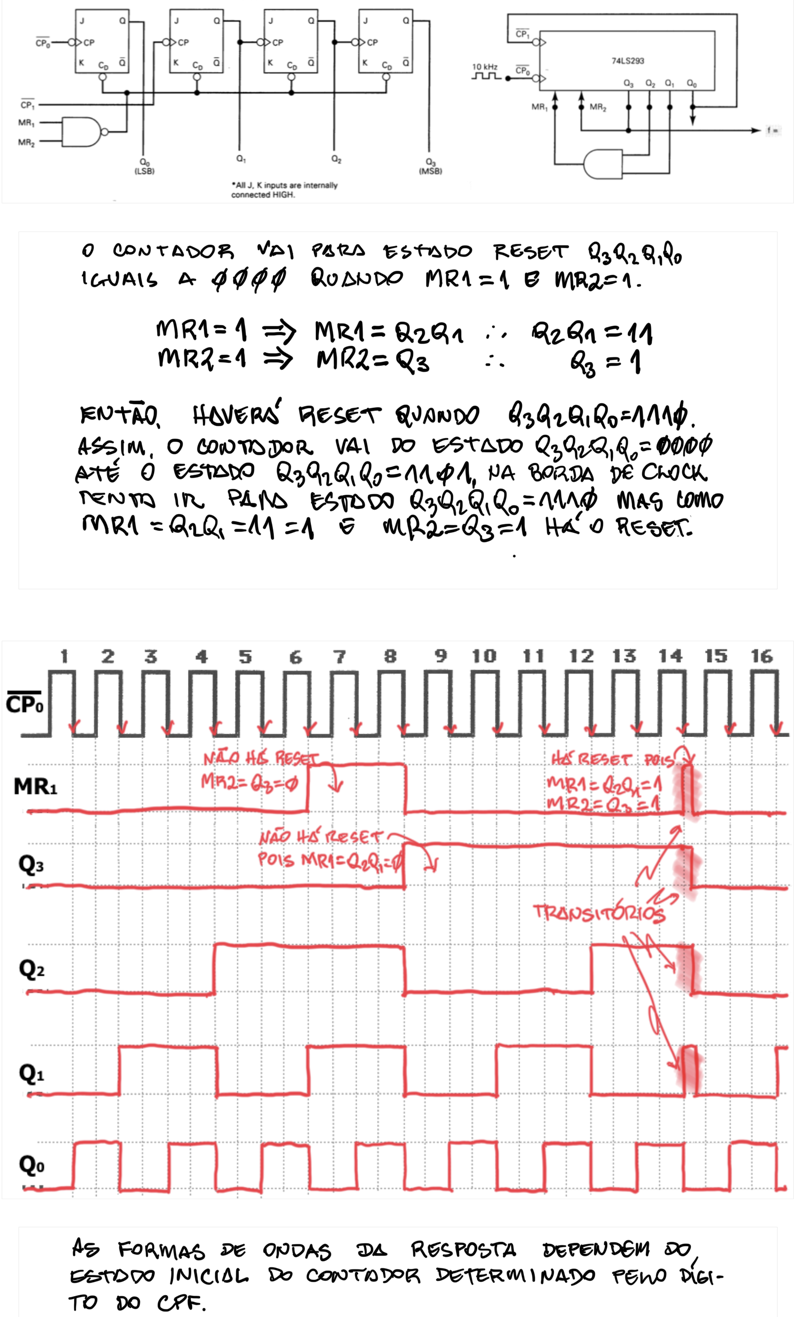 J Q J Q J Q J Q
CP0 CP CP CP CP
K CD Q K CD Q K CD Q K CD Q
CP1
MR1
MR2
Q0 Q1 Q2 Q3
(LSB) (MSB)
*All J, K inputs are internally
connected HIGH.
CP1
74LS293
10 kHz CP0
Q3 Q2 Q1 Q0
MR1 MR2
f =
O CONTADOR VAI PARA ESTADO RESET Q3Q2Q1Q0
IGUAIS A 0000 QUANDO MR1=1 E MR2=1.
MR1=1 ⇒ MR1=Q2Q1 ∴ Q2Q1=11
MR2=1 ⇒ MR2=Q3 ∴ Q3=1
ENTÃO, HAVERÁ RESET QUANDO Q3Q2Q1Q0=1110.
ASSIM, O CONTADOR VAI DO ESTADO Q3Q2Q1Q0=0000
ATÉ O ESTADO Q3Q2Q1Q0=1101, NA BORDA DE CLOCK
TENTA IR PARA ESTADO Q3Q2Q1Q0=1110 MAS COMO
MR1=Q2Q1=11=1 E MR2=Q3=1 HÁ O RESET.
1 2 3 4 5 6 7 8 9 10 11 12 13 14 15 16
CP0
NÃO HÁ RESET
MR2=Q3=0
HÁ RESET POIS
MR1=Q2Q1=1
MR2=Q3=1
MR1
NÃO HÁ RESET
POIS MR1=Q2Q1=0
Q3
TRANSITÓRIOS
Q2
Q1
Q0
AS FORMAS DE ONDAS DA RESPOSTA DEPENDEM DO
ESTADO INICIAL DO CONTADOR DETERMINADO PELO DÍGI-
TO DO CPF.